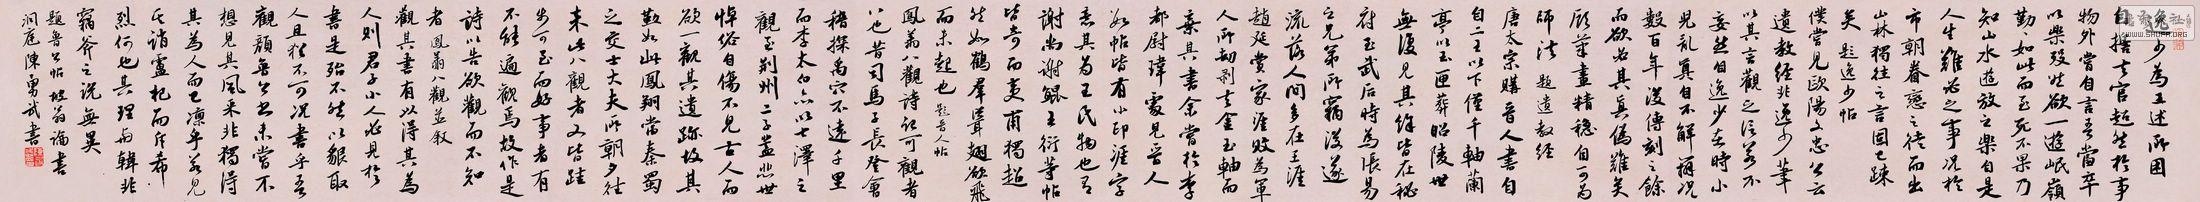 逸少為王述所困
自誓去官超然於事
物外嘗自言吾當卒
以樂死然欲一遊岷嶺
勤勤如此而至死不果乃
知山水遊放之樂自是
人生難必之事況於
市朝眷戀之徒而出
山林獨往之言固已疎
矣 題逸少帖
僕嘗見歐陽文忠公云
遺教經非逸少筆
以其言觀之信若不
妄然自逸少在時小
兒亂真自不解辨況
數百年後傳刻之餘
而欲必其真偽難矣
顧筆畫精穩自可為
師法 題遺教經
唐太宗購晉人書自
二王以下僅千軸蘭
亭以玉匣葬昭陵世
無復見其餘皆在秘
府至武后時為張易
之兄弟所竊後遂
流落人間多在王涯
趙延賞家涯敗為軍
人所劫剝去金玉軸而
棄其書余嘗於李
都尉瑋處見晉人
數帖皆有小印涯字
意其為王氏物也有
謝尚謝鯤王衍等帖
皆奇而夷甫獨超
然如鶴群聳翅欲飛
而未起也 題晉人帖
鳳翔八觀詩記可觀者
八也昔司馬子長登會
稽探禹穴不遠千里
而李太白亦以七澤之
觀至荊州二子蓋悲世
悼俗自傷不見古人而
欲一觀其遺跡故其
勤如此鳳翔當秦蜀
之交士大夫所朝夕往
來此八觀者又皆跬
步可至而好事者有
不能遍觀焉故作是
詩以告欲觀而不知
者 鳳翔八觀並敘
觀其書有以得其為
人則君子小人必見於
書是殆不然以貌取
人且猶不可況書乎吾
觀顏魯公書未嘗不
想見其風采非獨得
其為人而已凜乎若見
其誚盧杞而斥希
烈何也其理與韓非
竊斧之說無異
題魯公帖 坡翁論書
洞庭陳勇武書